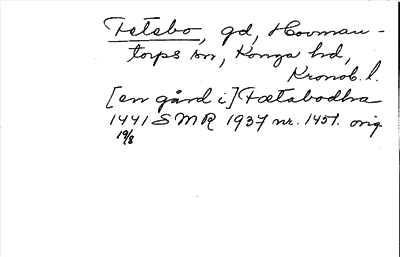 Fetebo, gd, Hovman-
torps sn, Konga hd,
Kronob. l.
[en gård i] Fætabodha
1441 SMR 1937 nr. 1451. orig.
19/8